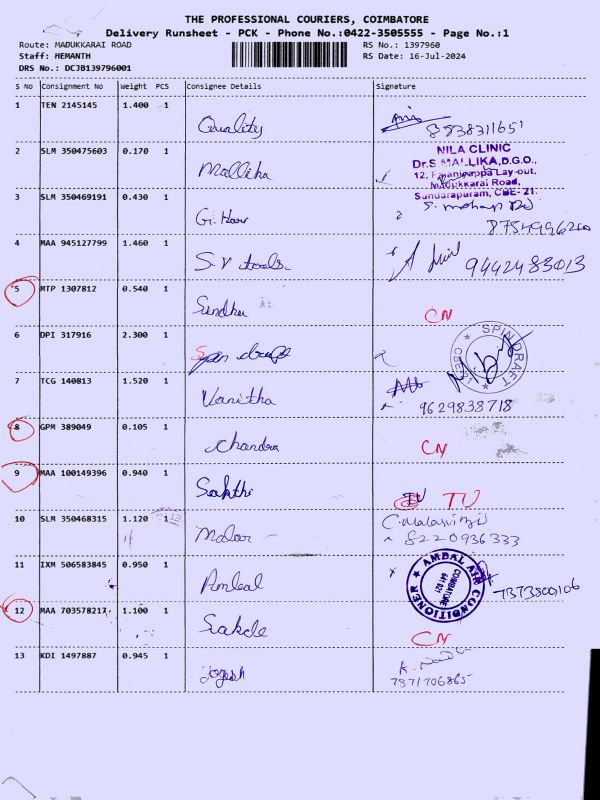 THE PROFESSIONAL COURIERS, COIMBATORE
Delivery Runsheet - PCK - Phone No.:0422-3505555 - Page No.:1
Route: MADUKKARAI ROAD RS No.: 1397960
Staff: HEMANTH RS Date: 16-Jul-2024
DRS No.: DCJB139796001
S No Consignment No Weight PCS Consignee Details Signature
1 TEN 2145145 1.400 1 Quality
8938311651
2 SLM 350475603 0.170 1 Mallika
NILA CLINIC
Dr.S.MALLIKA,D.G.O.,
12, Palaniappa Lay-out,
Madukkarai Road,
Sundarapuram, CBE- 21.
3 SLM 350469191 0.430 1
4 MAA 945127799 1.460 1 S.V tools
9442483013
5 MTP 1307812 0.540 1 Sindhu CN
6 DPI 317916 2.300 1
SPIN DRAFT
7 TCG 140813 1.520 1 Vanitha
9629838718
8 GPM 389049 0.105 1 Chandra CN
9 MAA 100149396 0.940 1 Sakthi TU
10 SLM 350468315 1.120 1 Malar
8220936333
11 IXM 506583845 0.950 1
AMBAL AIR CONDITIONER
COIMBATORE
641 021
12 MAA 703578217 1.100 1 CN
13 KDI 1497887 0.945 1 Jogesh
7371706865